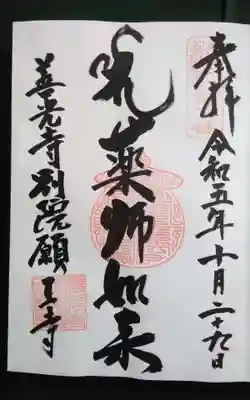 奉拝 令和五年十月二十九日
乳薬師如来
善光寺別院願王寺